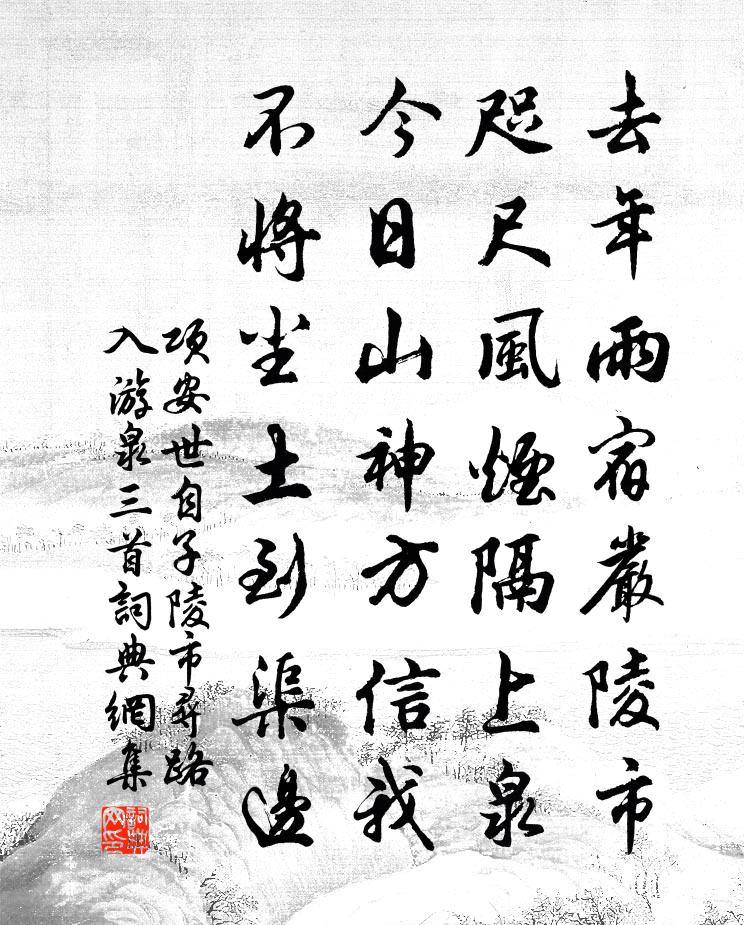 去年雨宿嚴陵市
咫尺風煙隔上泉
今日山神方信我
不將尘土到渠邊
项安世自子陵市尋路
入游泉三首詞典網集
詞典
网印